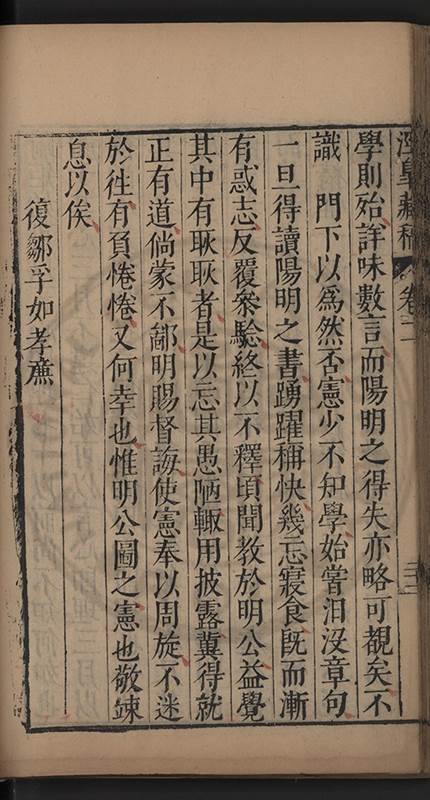 涇皐藏稿 卷二
學則始詳味數言而陽明之得失亦略可覩矣不
識　門下以爲然否憲少不知學始嘗汨沒章句
一旦得讀陽明之書踴躍稱快幾忘寢食旣而漸
有惑志反覆參驗終以不釋頃聞教於明公益覺
其中有耿耿者是以忘其愚陋輙用披露冀得就
正有道倘蒙不鄙明賜督誨使憲奉以周旋不迷
於徃有負惓惓又何幸也惟明公圖之憲也敬竦
息以俟
復鄒孚如孝廉